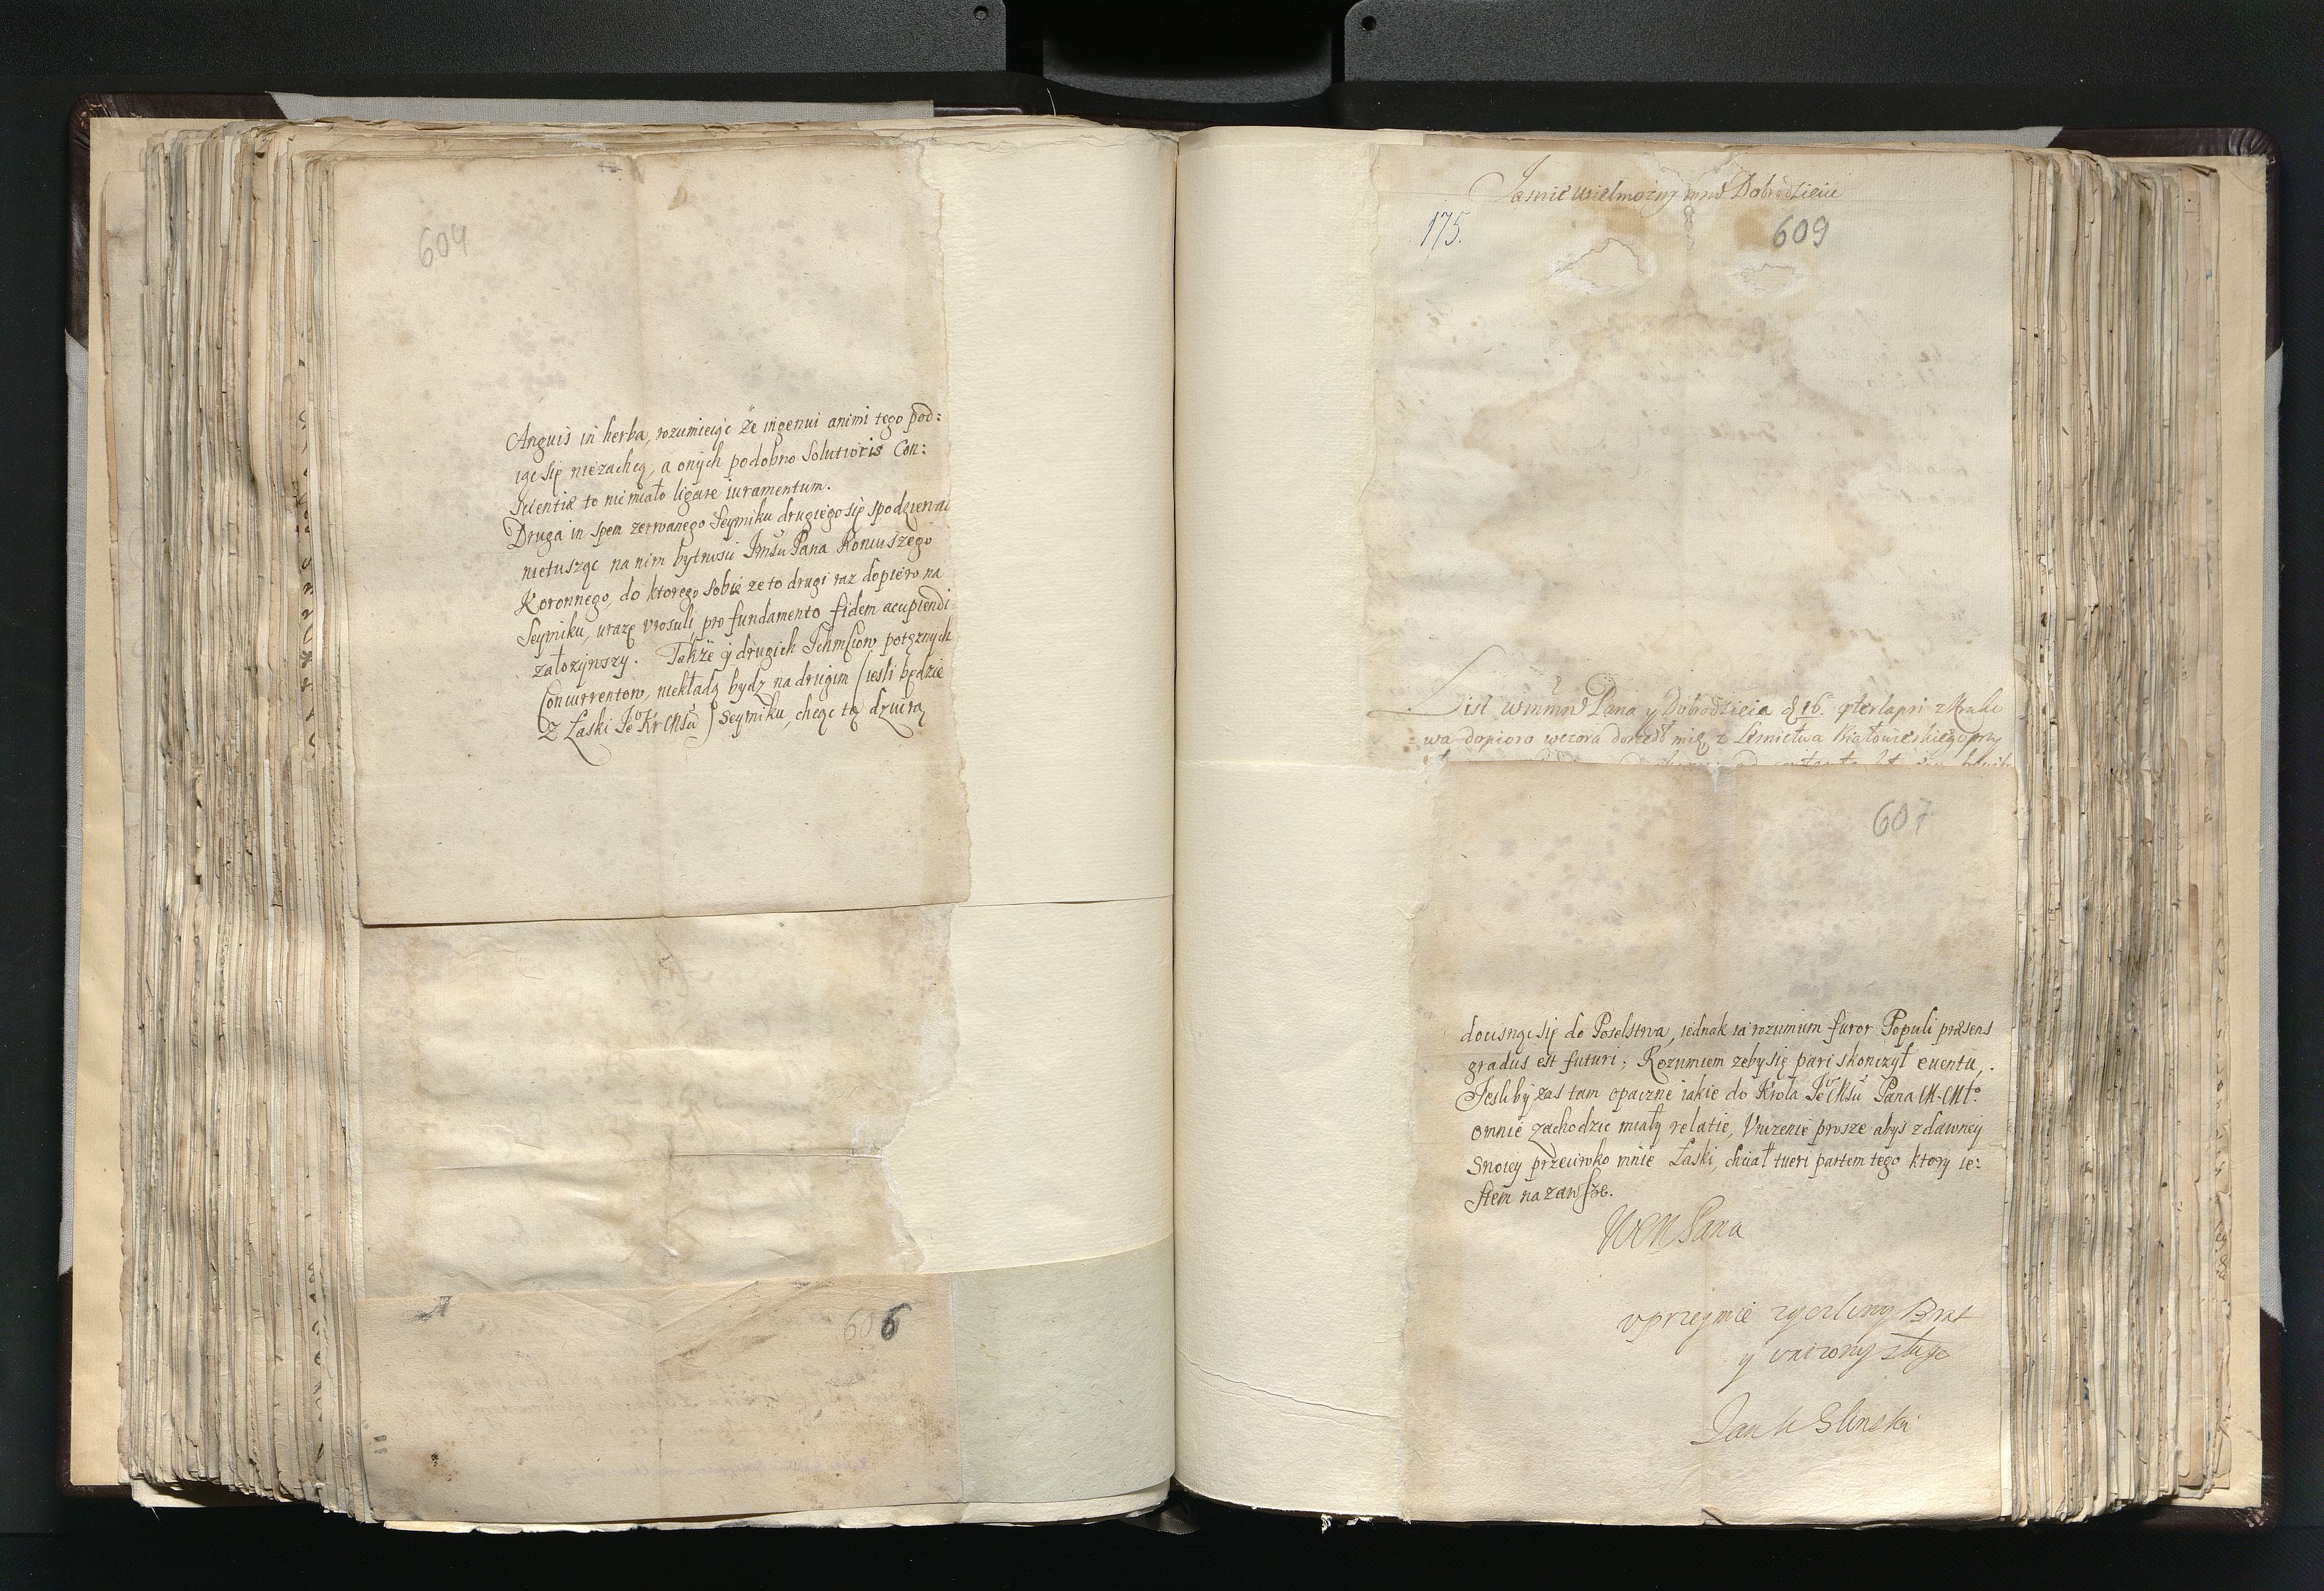 604
Anguis in herba, rozumieiąc że ingenui animi tego pod:
iąc się niezachcą, a onych podobno Solutioris Con:
scientiæ to nie miało ligare iuramentum.
Druga in spem zerwanego Seymiku drugiego się spodziewać
nietusząc na nim bytnosci Jmśći Pana Koniuszego
Koronnego, do ktorego sobie że to drugi raz dopiero na
Seymiku, urazę vrosuli pro fundamento fidem acupiendi
założywszy. Także y drugich Ichmściow potężnych
Concurrentow, niekładą bydz na drugim /iesli będzie
z Łaski Jeº Kr Mśći/ Seymiku, chcąc tą dzwirą
606
Jasnie wielmożny mnie Dobrodzieiu
175.
609
List wmmm Pana y Dobrodzieia 16. z Krako
wa dopioro wczora doszedł mię z Lesnictwa Białowieskiego przy
607
docisnąc się do Poselstwa, iednak ia rozumiem furor Populi præsens
gradus est futuri; Rozumiem żeby się pari skonczył euentu,.
Jesliby zas tam opaczne iakie do Krola Jeº Mśći Pana M. Młº
omnie zachodzic miały relatie, Vnizenie prosze abys z dawney
Swoiey przeciwko mnie Łaski, chciał tueri partem tego ktory ie:
stem na zawsze.
WMM Pana
vprzeymie zyczliwy Brat
y vnizony sługa
Jan Glinski